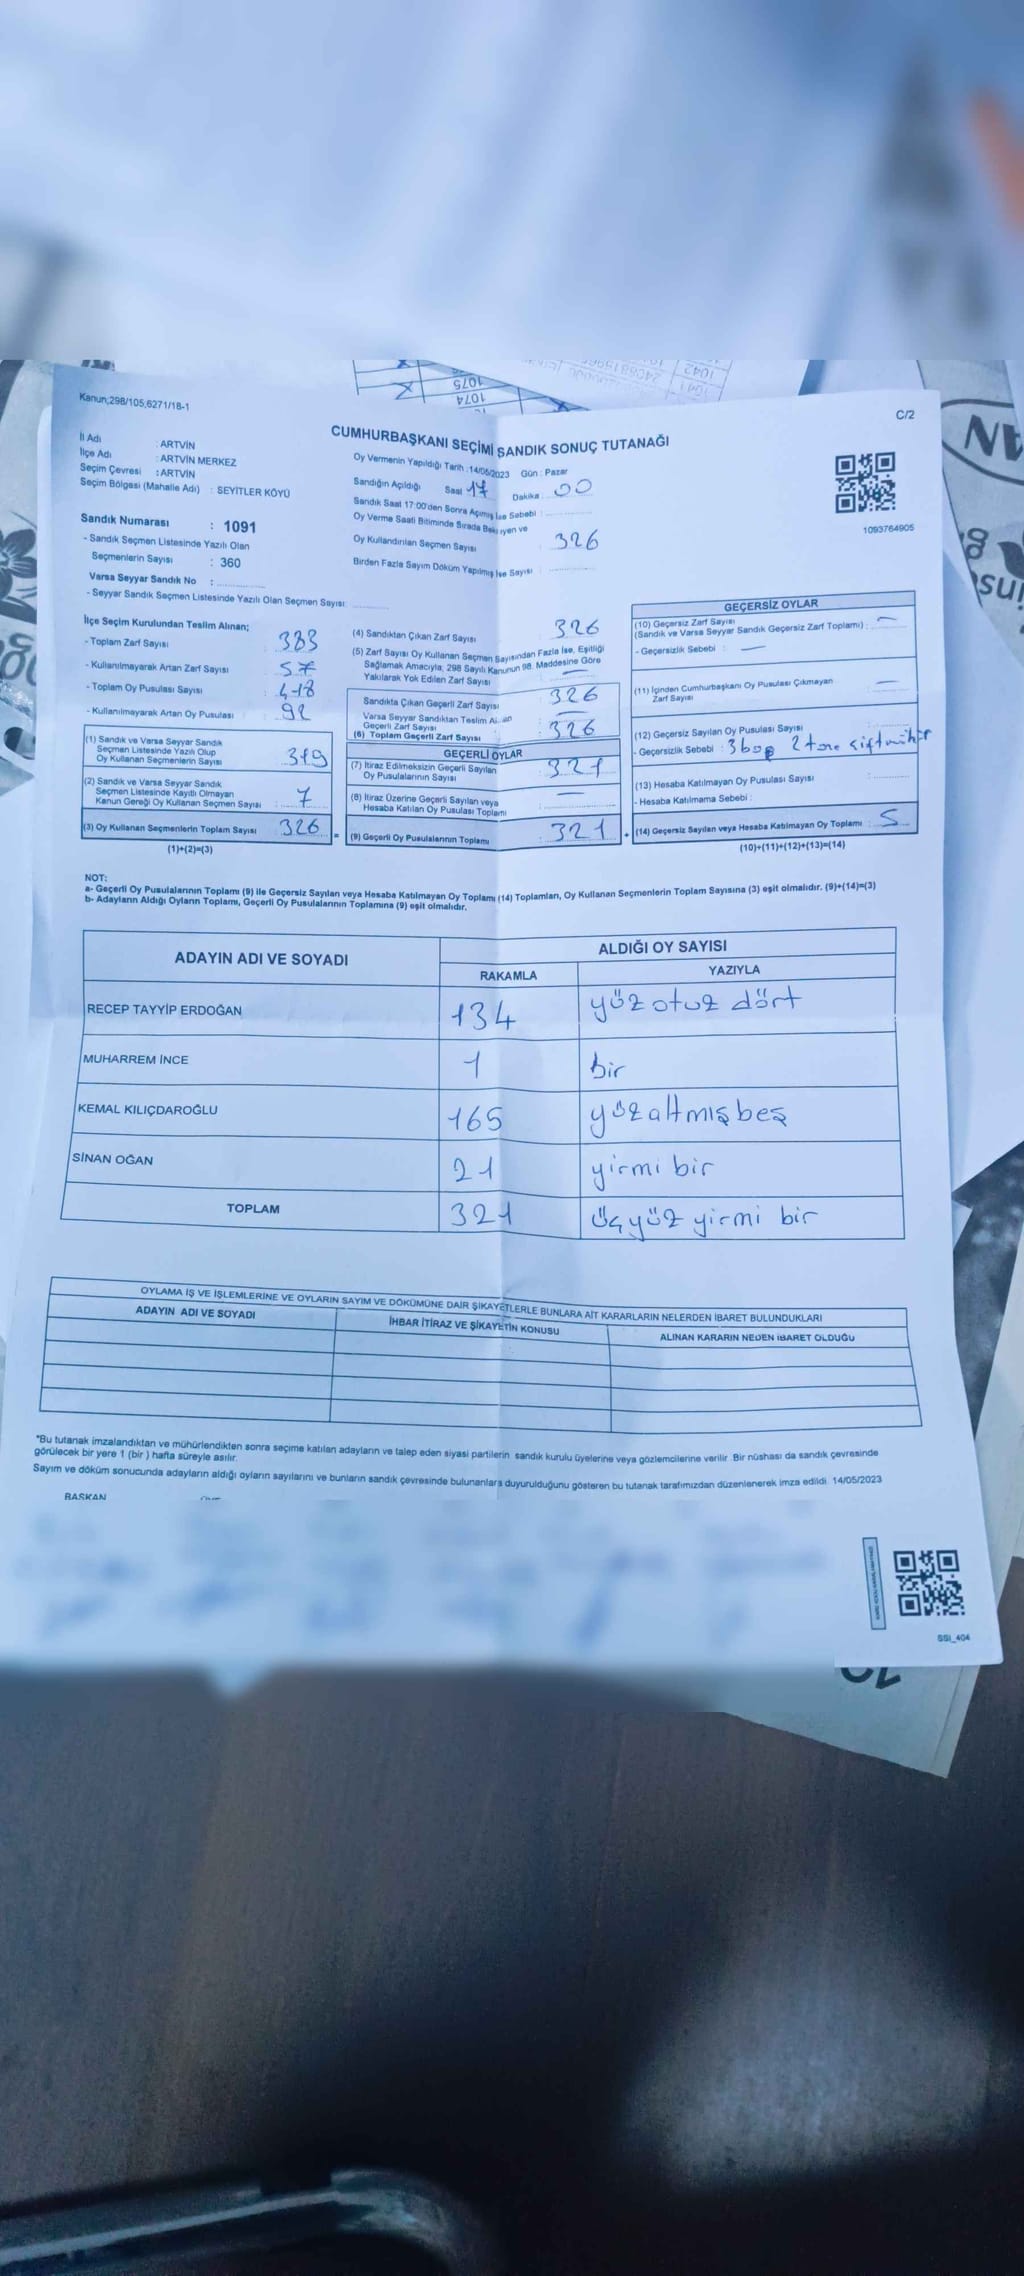 1075
1074
1042
1041
Kanun;298/105,6271/18-1
C/2
CUMHURBAŞKANI SEÇİMİ SANDIK SONUÇ TUTANAĞI
İl Adı : ARTVİN
İlçe Adı : ARTVİN MERKEZ
Seçim Çevresi : ARTVİN
Seçim Bölgesi (Mahalle Adı) : SEYİTLER KÖYÜ
Oy Vermenin Yapıldığı Tarih :14/05/2023 Gün : Pazar
Sandığın Açıldığı Saat 17 Dakika : 00
Sandık Saat 17:00'den Sonra Açılmış İse Sebebi :
Oy Verme Saati Bitiminde Sırada Bekleyen ve
Oy Kullandırılan Seçmen Sayısı : 326
Birden Fazla Sayım Döküm Yapılmış İse Sayısı :
1093764905
Sandık Numarası : 1091
- Sandık Seçmen Listesinde Yazılı Olan
Seçmenlerin Sayısı : 360
Varsa Seyyar Sandık No :
- Seyyar Sandık Seçmen Listesinde Yazılı Olan Seçmen Sayısı:
İlçe Seçim Kurulundan Teslim Alınan;
- Toplam Zarf Sayısı : 383
- Kullanılmayarak Artan Zarf Sayısı : 57
- Toplam Oy Pusulası Sayısı : 418
- Kullanılmayarak Artan Oy Pusulası : 92
(1) Sandık ve Varsa Seyyar Sandık
Seçmen Listesinde Yazılı Olup
Oy Kullanan Seçmenlerin Sayısı : 319
(2) Sandık ve Varsa Seyyar Sandık
Seçmen Listesinde Kayıtlı Olmayan
Kanun Gereği Oy Kullanan Seçmen Sayısı : 7
(3) Oy Kullanan Seçmenlerin Toplam Sayısı : 326
(1)+(2)=(3)
(4) Sandıktan Çıkan Zarf Sayısı : 326
(5) Zarf Sayısı Oy Kullanan Seçmen Sayısından Fazla İse, Eşitliği
Sağlamak Amacıyla, 298 Sayılı Kanunun 98. Maddesine Göre
Yakılarak Yok Edilen Zarf Sayısı : —
Sandıkta Çıkan Geçerli Zarf Sayısı : 326
Varsa Seyyar Sandıktan Teslim Alınan
Geçerli Zarf Sayısı : —
(6) Toplam Geçerli Zarf Sayısı : 326
GEÇERLİ OYLAR
(7) İtiraz Edilmeksizin Geçerli Sayılan
Oy Pusulalarının Sayısı : 321
(8) İtiraz Üzerine Geçerli Sayılan veya
Hesaba Katılan Oy Pusulası Toplamı : —
(9) Geçerli Oy Pusulalarının Toplamı : 321
GEÇERSİZ OYLAR
(10) Geçersiz Zarf Sayısı
(Sandık ve Varsa Seyyar Sandık Geçersiz Zarf Toplamı) : —
- Geçersizlik Sebebi : —
(11) İçinden Cumhurbaşkanı Oy Pusulası Çıkmayan
Zarf Sayısı : —
(12) Geçersiz Sayılan Oy Pusulası Sayısı
- Geçersizlik Sebebi : 3 boş 2 tane çift mühür
(13) Hesaba Katılmayan Oy Pusulası Sayısı :
- Hesaba Katılmama Sebebi :
(14) Geçersiz Sayılan veya Hesaba Katılmayan Oy Toplamı : 5
(10)+(11)+(12)+(13)=(14)
NOT:
a- Geçerli Oy Pusulalarının Toplamı (9) ile Geçersiz Sayılan veya Hesaba Katılmayan Oy Toplamı (14) Toplamları, Oy Kullanan Seçmenlerin Toplam Sayısına (3) eşit olmalıdır. (9)+(14)=(3)
b- Adayların Aldığı Oyların Toplamı, Geçerli Oy Pusulalarının Toplamına (9) eşit olmalıdır.
ADAYIN ADI VE SOYADI
ALDIĞI OY SAYISI
RAKAMLA YAZIYLA
RECEP TAYYİP ERDOĞAN 134 yüz otuz dört
MUHARREM İNCE 1 bir
KEMAL KILIÇDAROĞLU 165 yüzaltmışbeş
SİNAN OĞAN 21 yirmi bir
TOPLAM 321 üçyüz yirmi bir
OYLAMA İŞ VE İŞLEMLERİNE VE OYLARIN SAYIM VE DÖKÜMÜNE DAİR ŞİKAYETLERLE BUNLARA AİT KARARLARIN NELERDEN İBARET BULUNDUKLARI
ADAYIN ADI VE SOYADI
İHBAR İTİRAZ VE ŞİKAYETİN KONUSU
ALINAN KARARIN NEDEN İBARET OLDUĞU
"Bu tutanak imzalandıktan ve mühürlendikten sonra seçime katılan adayların ve talep eden siyasi partilerin sandık kurulu üyelerine veya gözlemcilerine verilir. Bir nüshası da sandık çevresinde
görülecek bir yere 1 (bir ) hafta süreyle asılır.
Sayım ve döküm sonucunda adayların aldığı oyların sayılarını ve bunların sandık çevresinde bulunanlara duyurulduğunu gösteren bu tutanak tarafımızdan düzenlenerek imza edildi. 14/05/2023
BAŞKAN
SSI_404